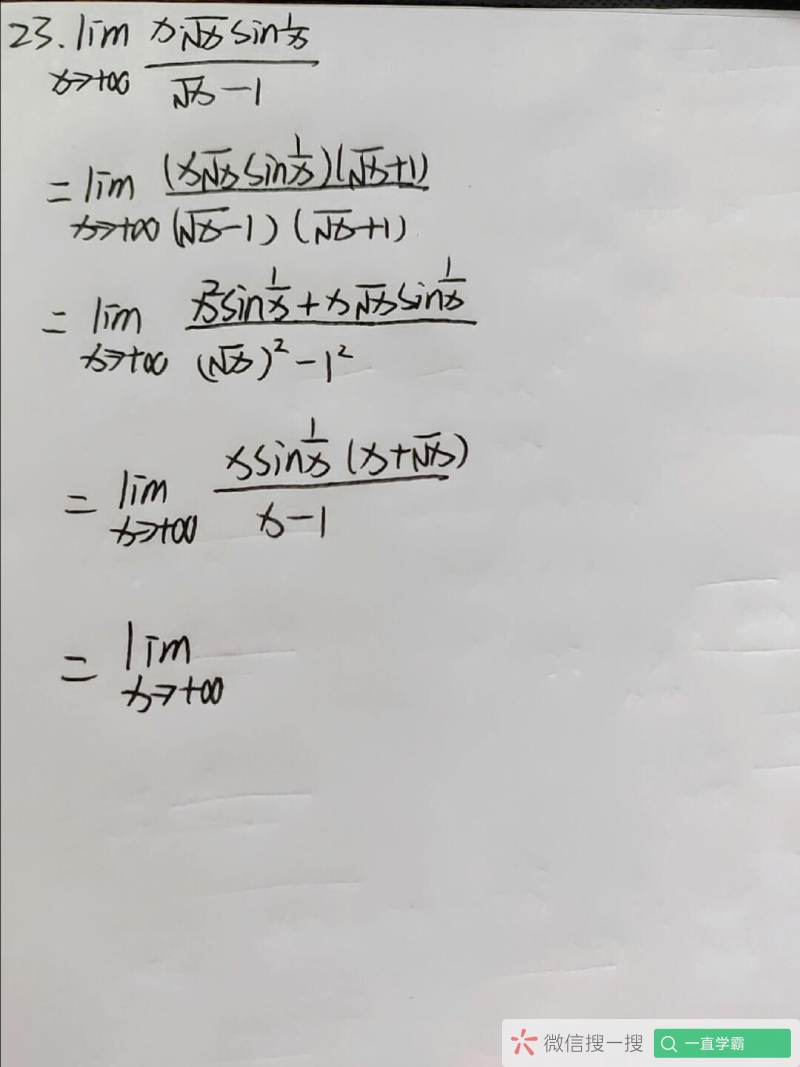 23. lim x→+∞ x√x sin 1/x / √x − 1
= lim x→+∞ (x√x sin 1/x)(√x+1) / (√x−1)(√x+1)
= lim x→+∞ x² sin 1/x + x√x sin 1/x / (√x)² − 1²
= lim x→+∞ x sin 1/x (x+√x) / x−1
= lim x→+∞
微信搜一搜 一直学霸